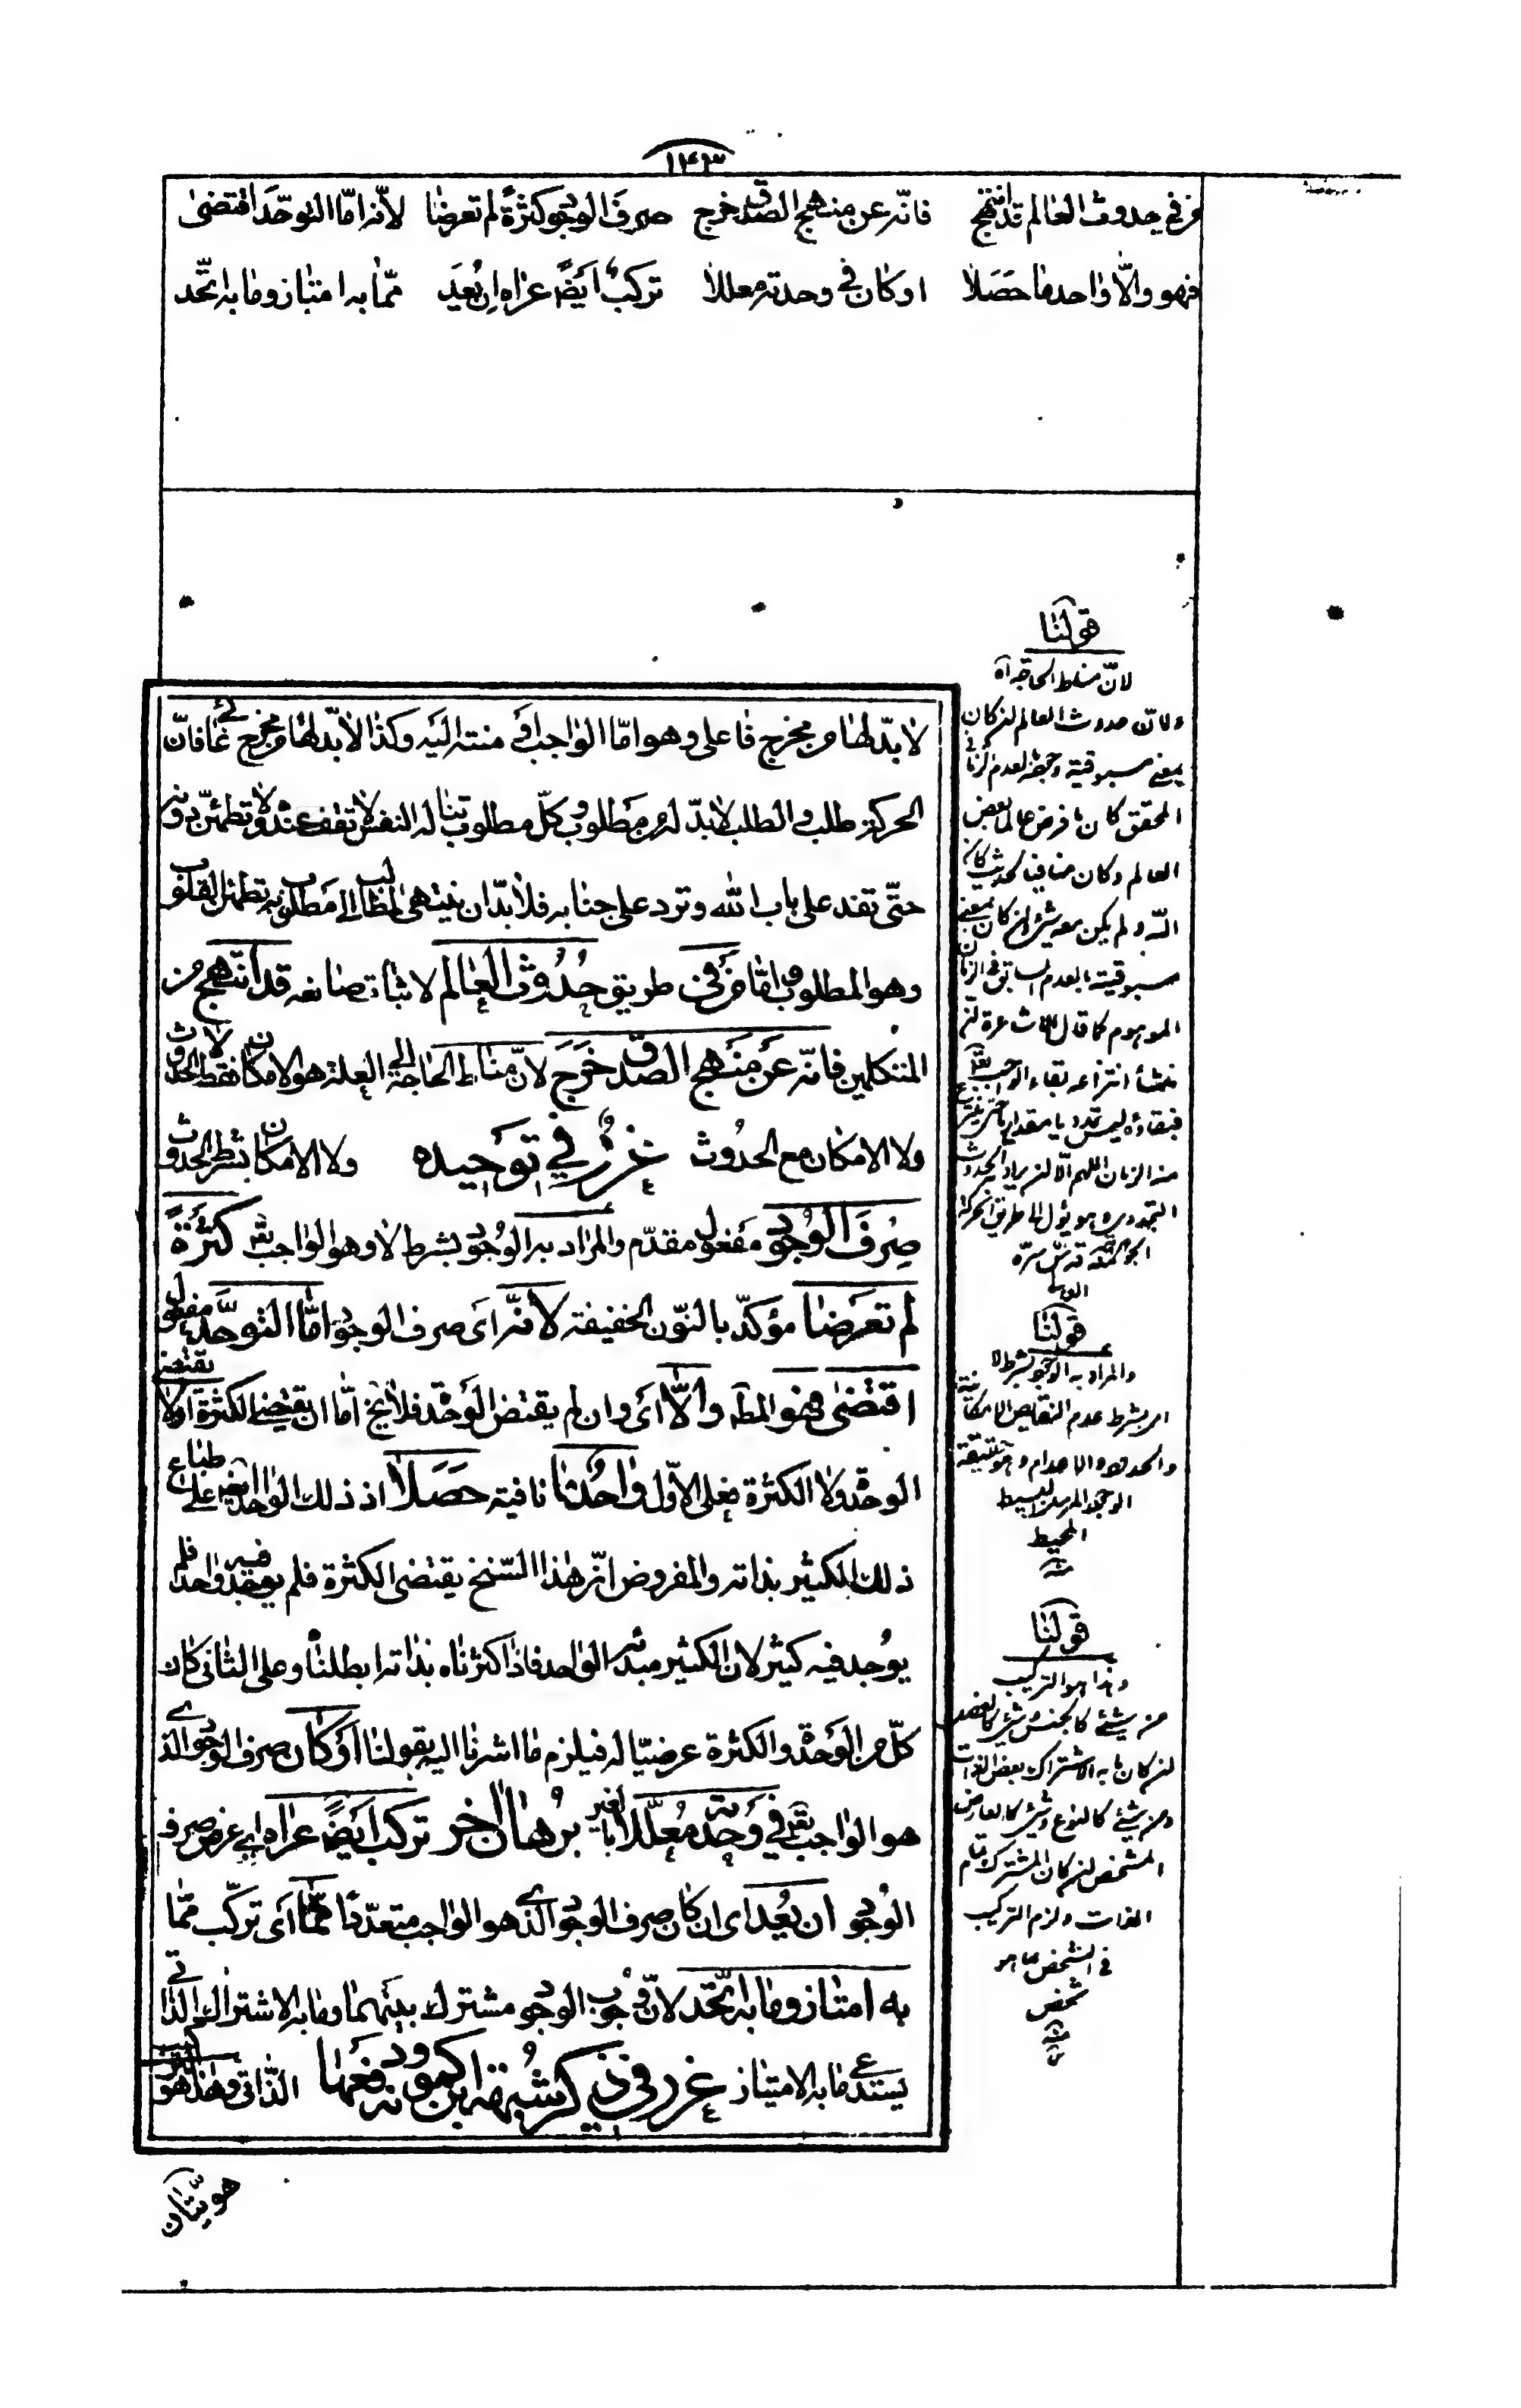 ١٤٣
من في حدوث العالم قد انتهج فانّه عن منهج الصدق خرج صرف الوجود كثرة لم تعرضا لأنّه امّا التوحّد اقتضى
فهو والّا واحد ما حصلا او كان في وحدته معللا تركب ايضا عراه ان يعد ممّا به امتاز وما به اتّحد
لا بدّ لها من مخرج فاعلى وهو امّا الواجب او منته اليه وكذا لا بدّ لها من مخرج غائى فانّ
الحركة طلب والطلب لا بدّ له من مطلوب وكلّ مطلوب تناله النفس لا تقف عنده ولا تطمئنّ دونه
حتّى تفد على باب الله وترد على جنابه فلا بدّ ان ينتهى المطالب الى مطلوب به تطمئنّ القلوب
وهو المطلوب وامّا من في طريق حدوث العالم لاثبات صانعه قد انتهج من
المتكلمين فانّه عن منهج الصدق خرج لأنّ مناط الحاجة الى العلة هو الامكان فقط لا الحدوث
ولا الامكان مع الحدوث ولا الامكان بشرط الحدوث غرر في توحيده
صرف الوجود مفعول مقدّم والمراد به الوجود بشرط لا وهو الواجب تعالى كثرة
لم تعرضا مؤكّد بالنّون الخفيفة لأنّه اى صرف الوجود امّا التوحّد مفعول يقتضى
اقتضى فهو المط والّا اى وان لم يقتض الوحدة فلا يخ امّا ان يقتضى الكثرة او لا
الوحدة ولا الكثرة فعلى الاوّل واحد ما نافية حصلا اذ ذلك الواحد ايضا على طباع
ذلك الكثير بذاته والمفروض انّ هذا السّنخ يقتضى الكثرة فلم يوجد فيه واحد فلم
يوجد فيه كثير لان الكثير مبدئه الواحد فاذا كثرناه بذاته ابطلناه وعلى الثانى كان
كلّ من الوحدة والكثرة عرضيّا له فيلزم ما اشرنا اليه بقولنا او كان صرف الوجود الذى
هو الواجب تعالى في وحدته معلّلا بالغير برهان اخر تركب ايضا عراه اى عرض صرف
الوجود ان يعد اى ان كان صرف الوجود الذى هو الواجب متعدّدا ممّا اى تركّب ممّا
به امتاز وما به اتّحد لأنّ وجوب الوجود مشترك بينهما وما به الاشتراك الذاتى
يستدعى ما به الامتياز الذّاتى وهذا هو التركيب غرر في ذكر شبهة ابن كمونه ودفعها
هويّتان
قولنا
لانّ مناط الحاجة اه
ولانّ حدوث العالم ان كان
بمعنى مسبوقية وجوده بالعدم الزمانى
المحقق كان ما فرض عالما بعض
العالم وكان منافيا لحديث كان
الله ولم يكن معه شىء وان كان بمعنى
مسبوقيته بالعدم السابق في الزمان
الموهوم كما قال الاشاعرة ان
منشأ انتزاعه بقاء الواجب تعالى
فبقاؤه ليس تمدديا مقداريا حتى ينتزع
منه الزمان اللهم الّا ان يراد الحدوث
التجددى وهو يؤل الى طريق الحركة
الجوهرية قدس سرّه
قولنا
والمراد به الوجود بشرط لا
اى بشرط عدم النقايص الامكانية
والحدود والاعدام وهو حقيقة
الوجود المرسل البسيط
المحيط
منه
قولنا
وهذا هو التركيب
من شىء كالجنس وشىء كالفصل
ان كان ما به الاشتراك بعض الذات
ومن شىء كالنوع وشىء كالعارض
المشخص ان كان المشترك تمام
الذات ولزم التركيب
في الشخص بما هو
شخص
منه